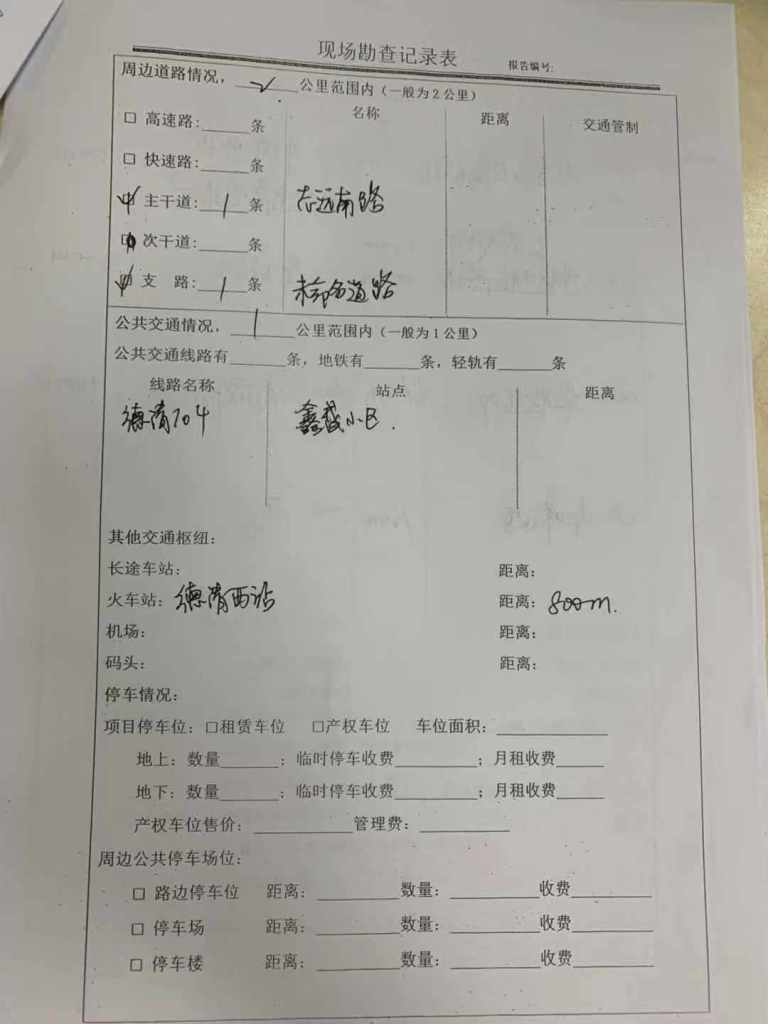 现场勘查记录表
报告编号:
周边道路情况，__√__公里范围内（一般为2公里）
名称 距离 交通管制
□ 高速路:____条
□ 快速路:____条
☑ 主干道:__1__条 志远南路
□ 次干道:____条
☑ 支 路:__1__条 未命名道路
公共交通情况，__1__公里范围内（一般为1公里）
公共交通线路有____条，地铁有____条，轻轨有____条
线路名称 站点 距离
德清704 鑫盛小区.
其他交通枢纽:
长途车站: 距离:
火车站: 德清西站 距离: 800m.
机场: 距离:
码头: 距离:
停车情况:
项目停车位: □租赁车位 □产权车位 车位面积:____
地上: 数量____; 临时停车收费____; 月租收费____
地下: 数量____; 临时停车收费____; 月租收费____
产权车位售价: ____管理费: ____
周边公共停车场位:
□ 路边停车位 距离: ____数量: ____收费____
□ 停车场 距离: ____数量: ____收费____
□ 停车楼 距离: ____数量: ____收费____